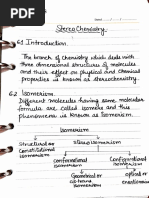 Date
Stereo Chemistry.
6.1 Introduction.
The branch of chemistry which deals with
three dimensional structures of molecules
and their effect on physical and chemical
properties is known as stereochemistry.
6.2 Isomerism.
Different molecules having same molecular
formula are called isomers and this
phenomenon is known as Isomerism.
Isomerism
Structural or Stereo isomerism
Constitutional
Isomerism
Conformational Configurational
Isomerism Isomerism
Geometrical or optical or